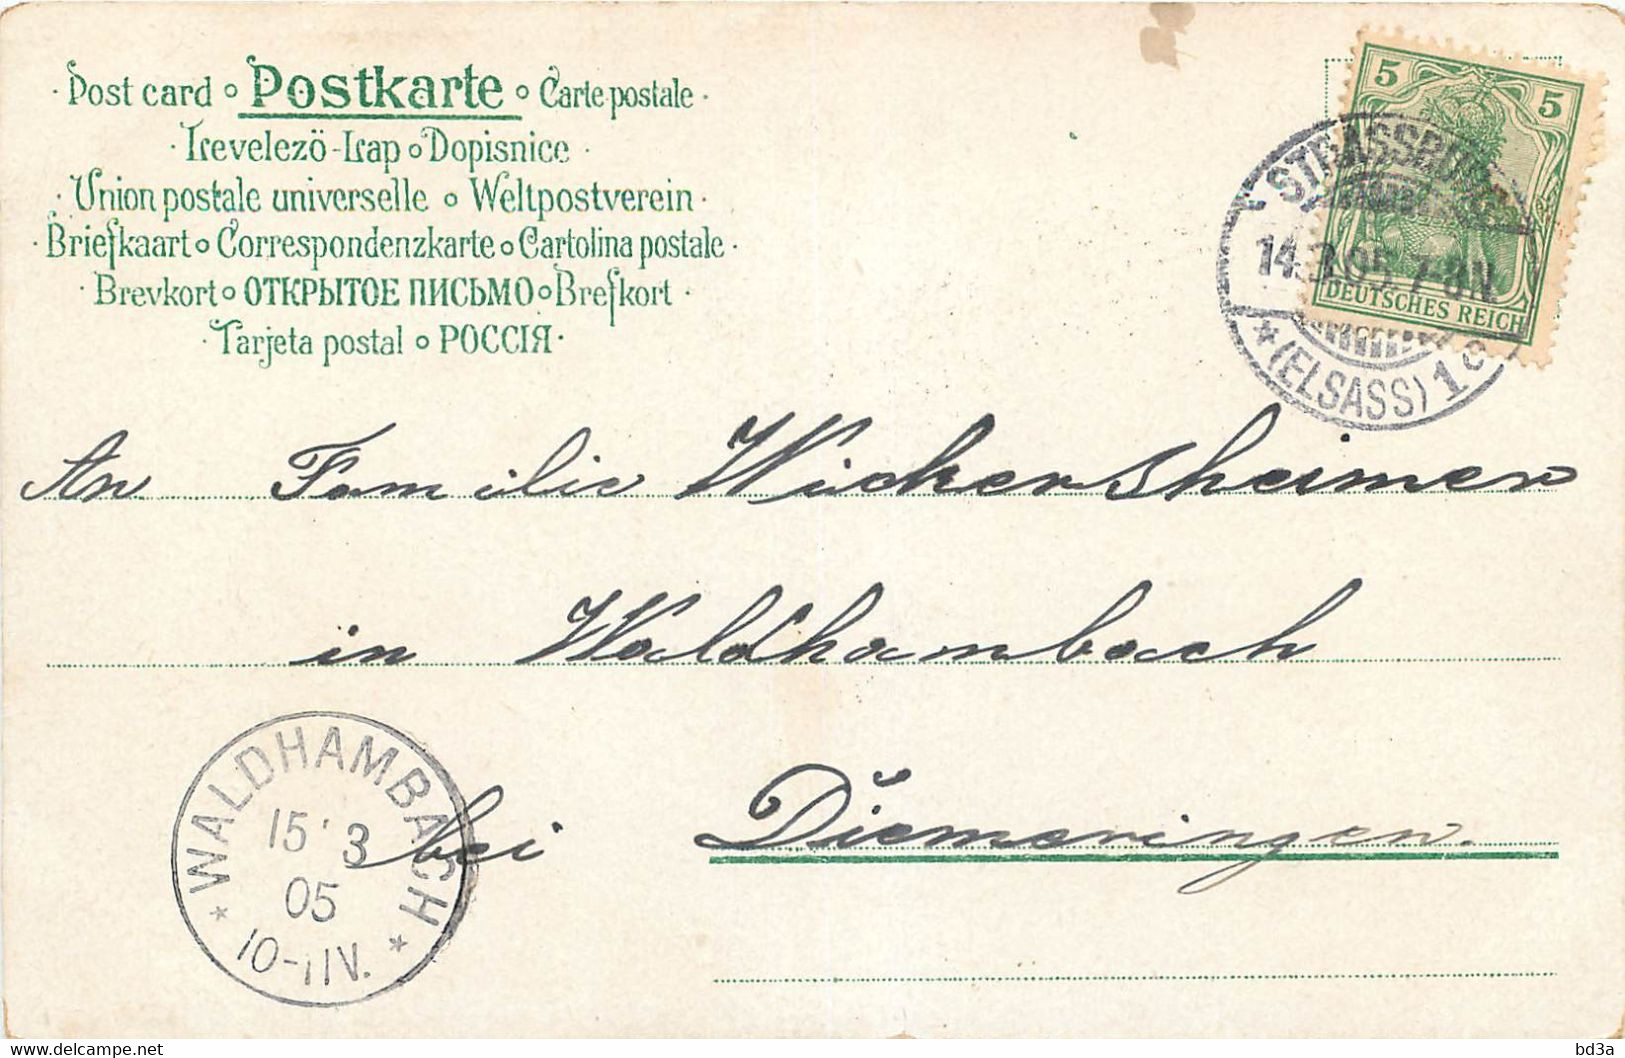 · Post card ∘ Postkarte ∘ Carte postale ·
· Levelezö-Lap ∘ Dopisnice ·
· Union postale universelle ∘ Weltpostverein ·
· Briefkaart ∘ Correspondenzkarte ∘ Cartolina postale ·
· Brevkort ∘ ОТКРЫТОЕ ПИСЬМО ∘ Brefkort ·
· Tarjeta postal ∘ РОССІЯ ·
5 5
DEUTSCHES REICH
STRASSBURG
14.3.05. 7-8N.
* (ELSASS) 1 c
An Familie Wickersheimer
in Waldhambach
bei Diemeringen.
* WALDHAMBACH *
15 3
05
10-11V.
bd3a
www.delcampe.net